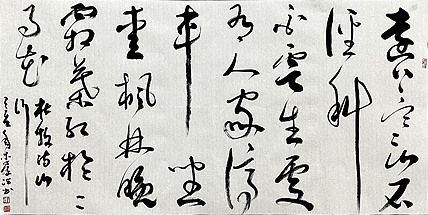 遠上寒山石
徑斜
白雲生處
有人家停
車坐
愛楓林晚
霜葉紅於二
月花
杜牧詩山
行